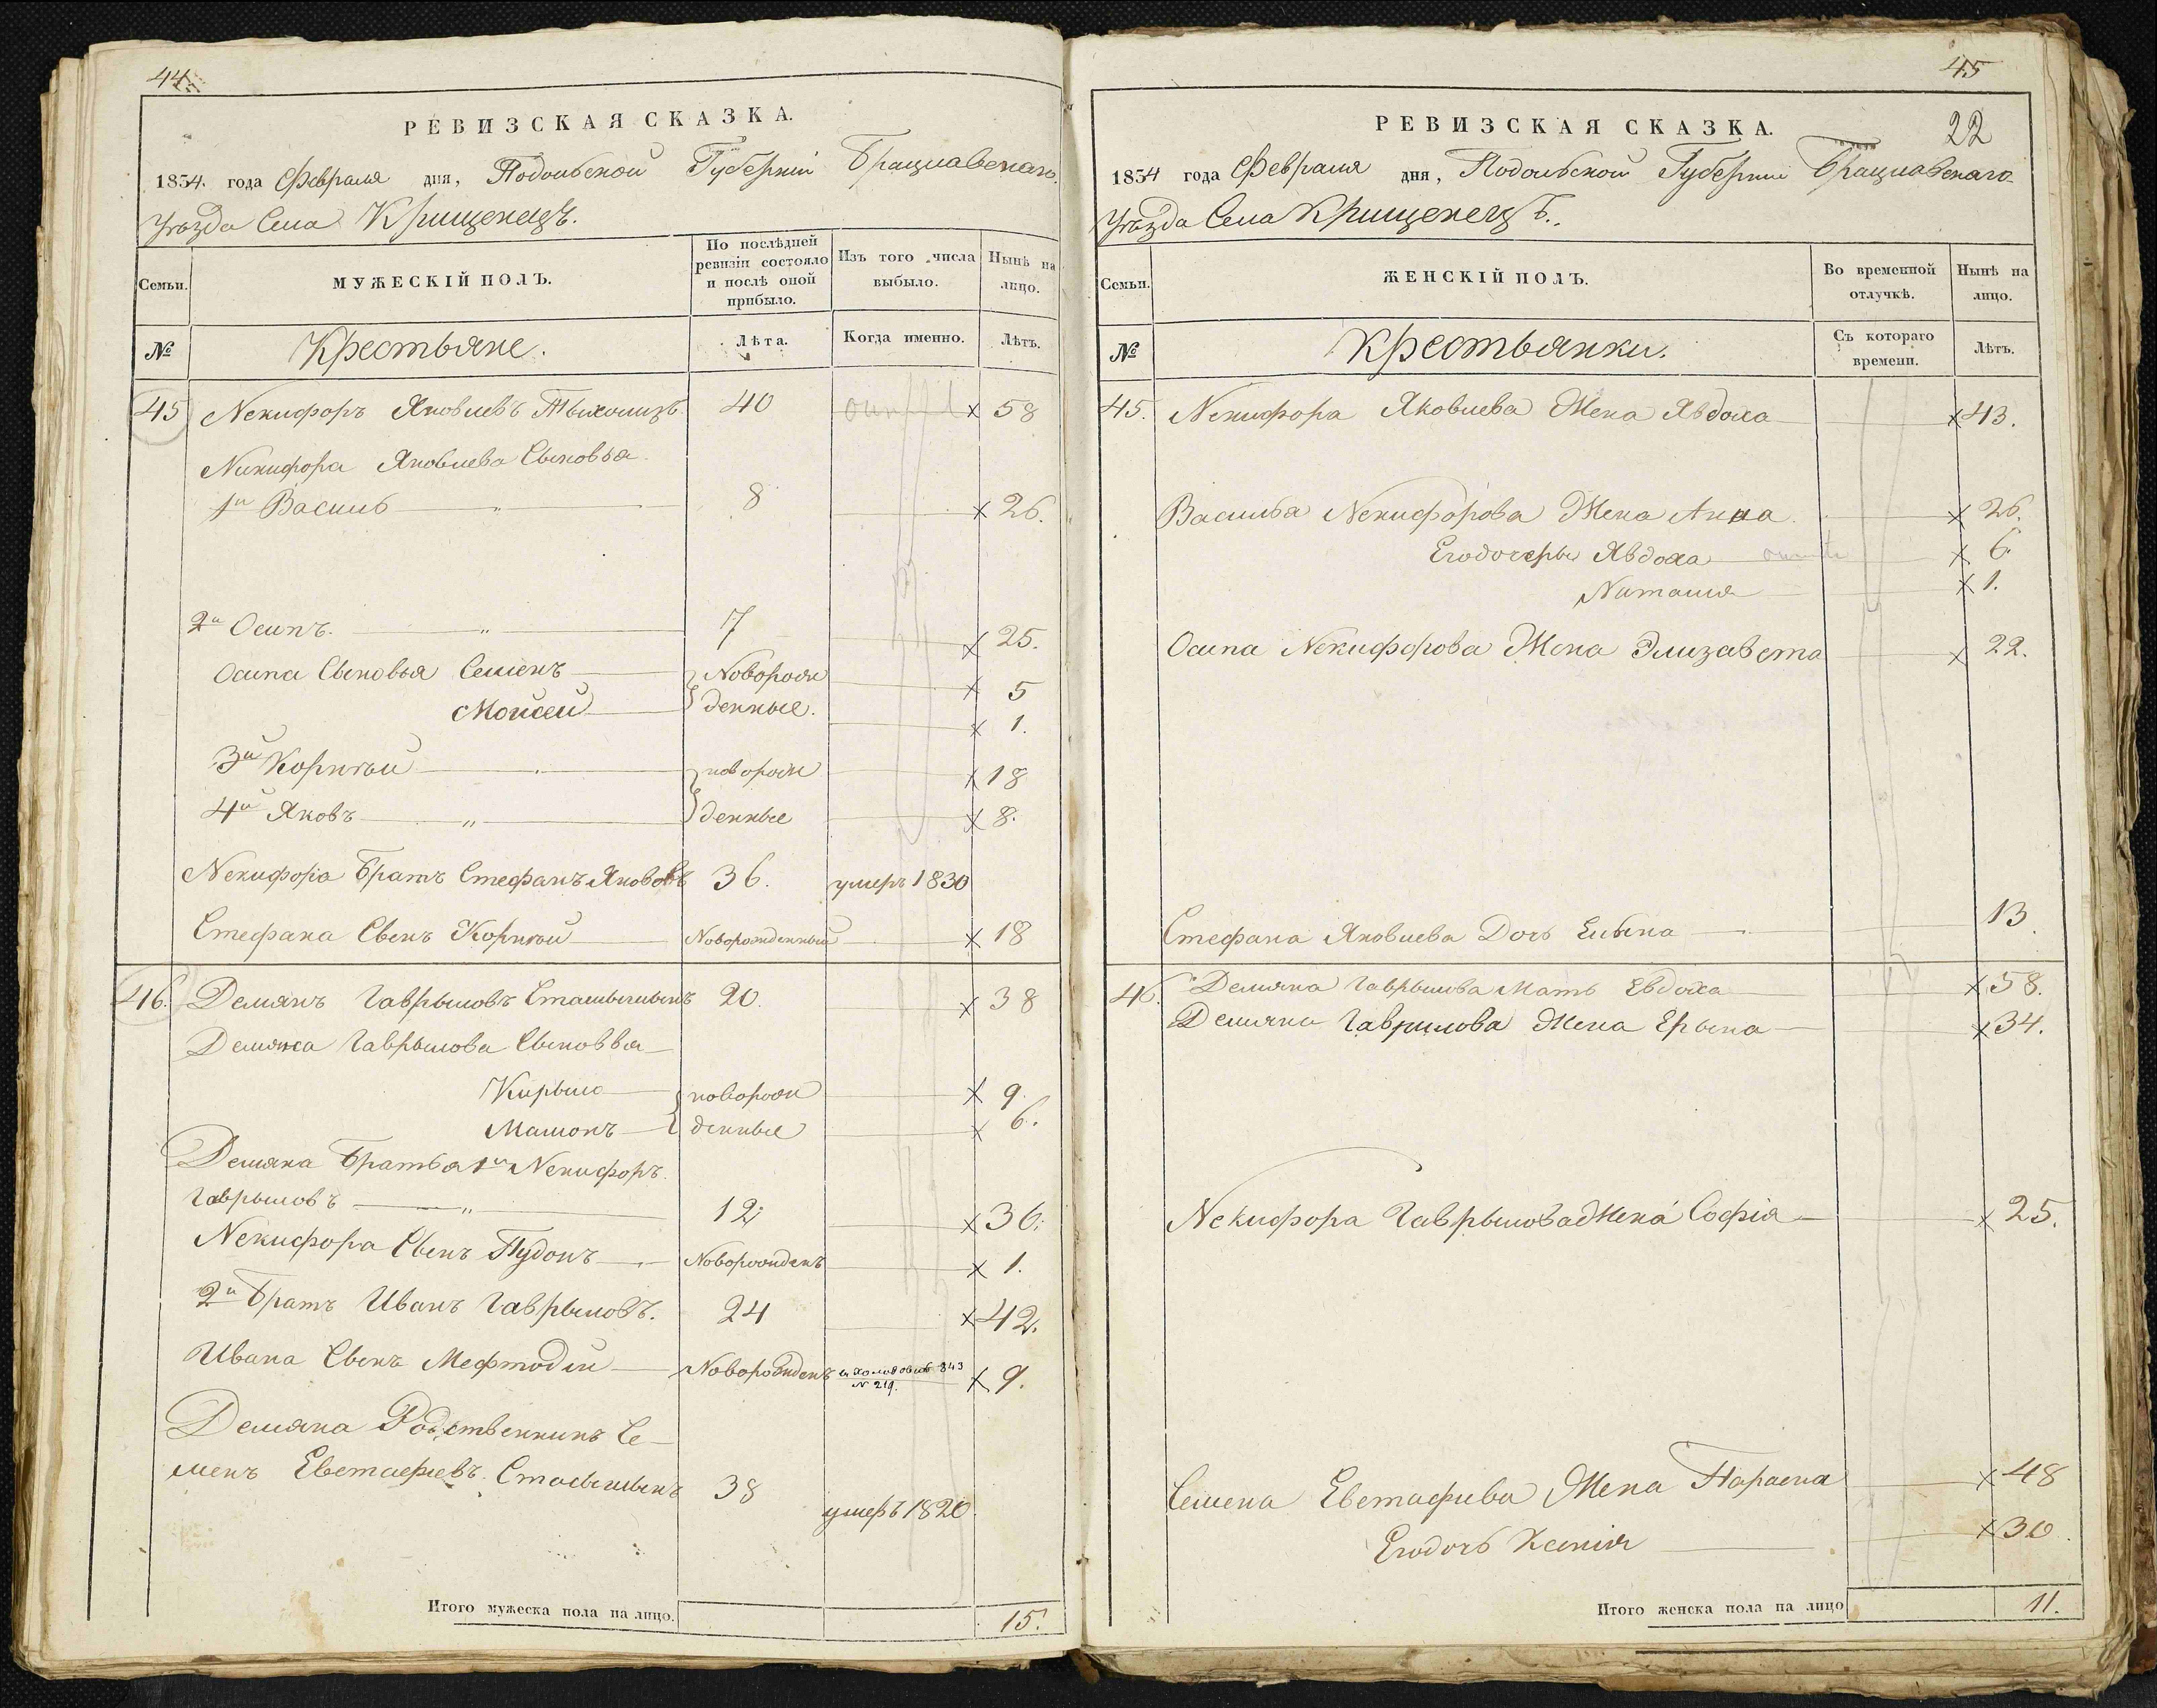 44.
РЕВИЗСКАЯ СКАЗКА.
1834. года Февраля дня, Подольской Губерніи Брацлавскаго
Уѣзда Села Крищенецъ.
Семьи.
МУЖЕСКІЙ ПОЛЪ.
По послѣдней ревизіи состояло и послѣ оной прибыло.
Изъ того числа выбыло.
Нынѣ на лицо.
№
Крестьяне.
Лѣта.
Когда именно.
Лѣтъ.
45 Некифоръ Яковлевъ 40 х 58
Никифора Яковлева Сыновья
1й Василь " 8 х 26.
2й Осипъ. " 7 х 25.
Осипа Сыновья Семенъ Новорож х 5
Мойсей денные. х 1.
3й Корнѣй новорож х 18
4й Яковъ " денные х 8.
Некифора Братъ Стефанъ Якововъ 36. умеръ 1830
Стефана Сынъ Корнѣй Новорожденный х 18
46. Демянъ Гаврыловъ 20. х 38
Демяна Гаврылова Сыновья
Кирыло новорож х 9.
денные х 6.
Демяна Братья 1й Некифоръ
Гаврыловъ " 12 х 36.
Некифора Сынъ Новорожденъ х 1.
2й Братъ Иванъ Гаврыловъ. 24 х 42.
Ивана Сынъ Мефтодій Новорожденъ 843 х 9.
N 219.
Демяна Родственникъ Се-
менъ Евстафіевъ 38 умеръ 1820.
Итого мужеска пола на лицо. 15.
45
РЕВИЗСКАЯ СКАЗКА.
22
1834 года Февраля дня, Подольской Губерніи Брацлавскаго
Уѣзда Села Крищенецъ.
Семьи.
ЖЕНСКІЙ ПОЛЪ.
Во временной отлучкѣ.
Нынѣ на лицо.
№
Крестьянки.
Съ котораго времени.
Лѣтъ.
45. Некифора Яковлева Жена Явдоха х 43.
Василья Некифорова Жена Анна х 26.
Его дочеры Явдоха х 6.
Наталія х 1.
Осипа Некифорова Жена Элизавета х 22.
Стефана Яковлева Дочь Елена 13
46. Демяна Гаврылова Мать Евдоха х 58.
Демяна Гаврилова Жена Ерына х 34.
Некифора Гаврылова Жена Софія х 25.
Семена Евстафіева Жена Параска х 48
Его дочь Ксенія х 30.
Итого женска пола на лицо 11.